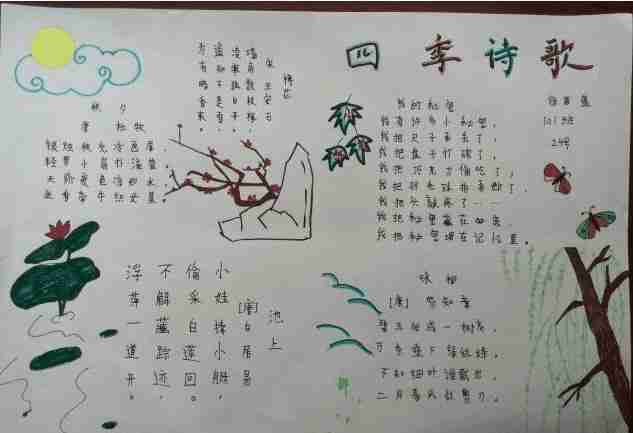 四季诗歌
宋 王安石
梅花
墙角数枝梅，
凌寒独自开。
遥知不是雪，
为有暗香来。
秋夕
唐 杜牧
银烛秋光冷画屏，
轻罗小扇扑流萤。
天阶夜色凉如水，
坐看牵牛织女星。
我的秘密
我有许多小秘密，
我把尺子弄丢了，
我把盘子打碎了，
我把巧克力偷吃了，
我把
我把头
我把秘密藏在
我把秘密埋在记忆里。
101班
24号
池上
[唐]白居易
小娃撑小艇，
偷采白莲回。
不解藏踪迹，
浮萍一道开。
咏柳
[唐] 贺知章
碧玉妆成一树高，
万条垂下绿丝绦。
不知细叶谁裁出，
二月春风似剪刀。